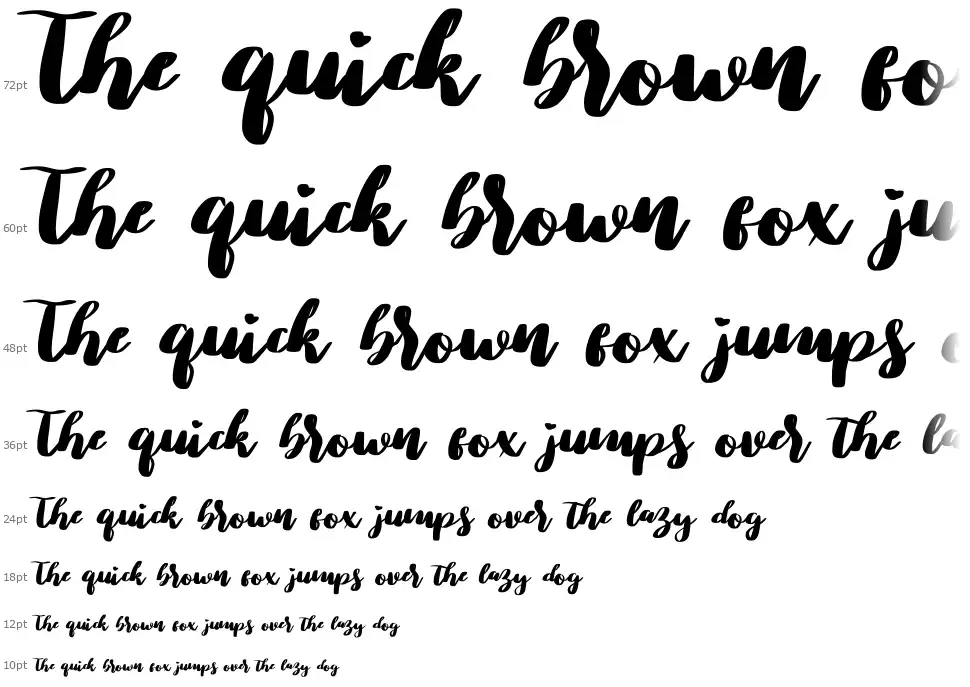 72pt The quick brown fo
60pt The quick brown fox ju
48pt The quick brown fox jumps
36pt The quick brown fox jumps over the la
24pt The quick brown fox jumps over the lazy dog
18pt The quick brown fox jumps over the lazy dog
12pt The quick brown fox jumps over the lazy dog
10pt The quick brown fox jumps over the lazy dog